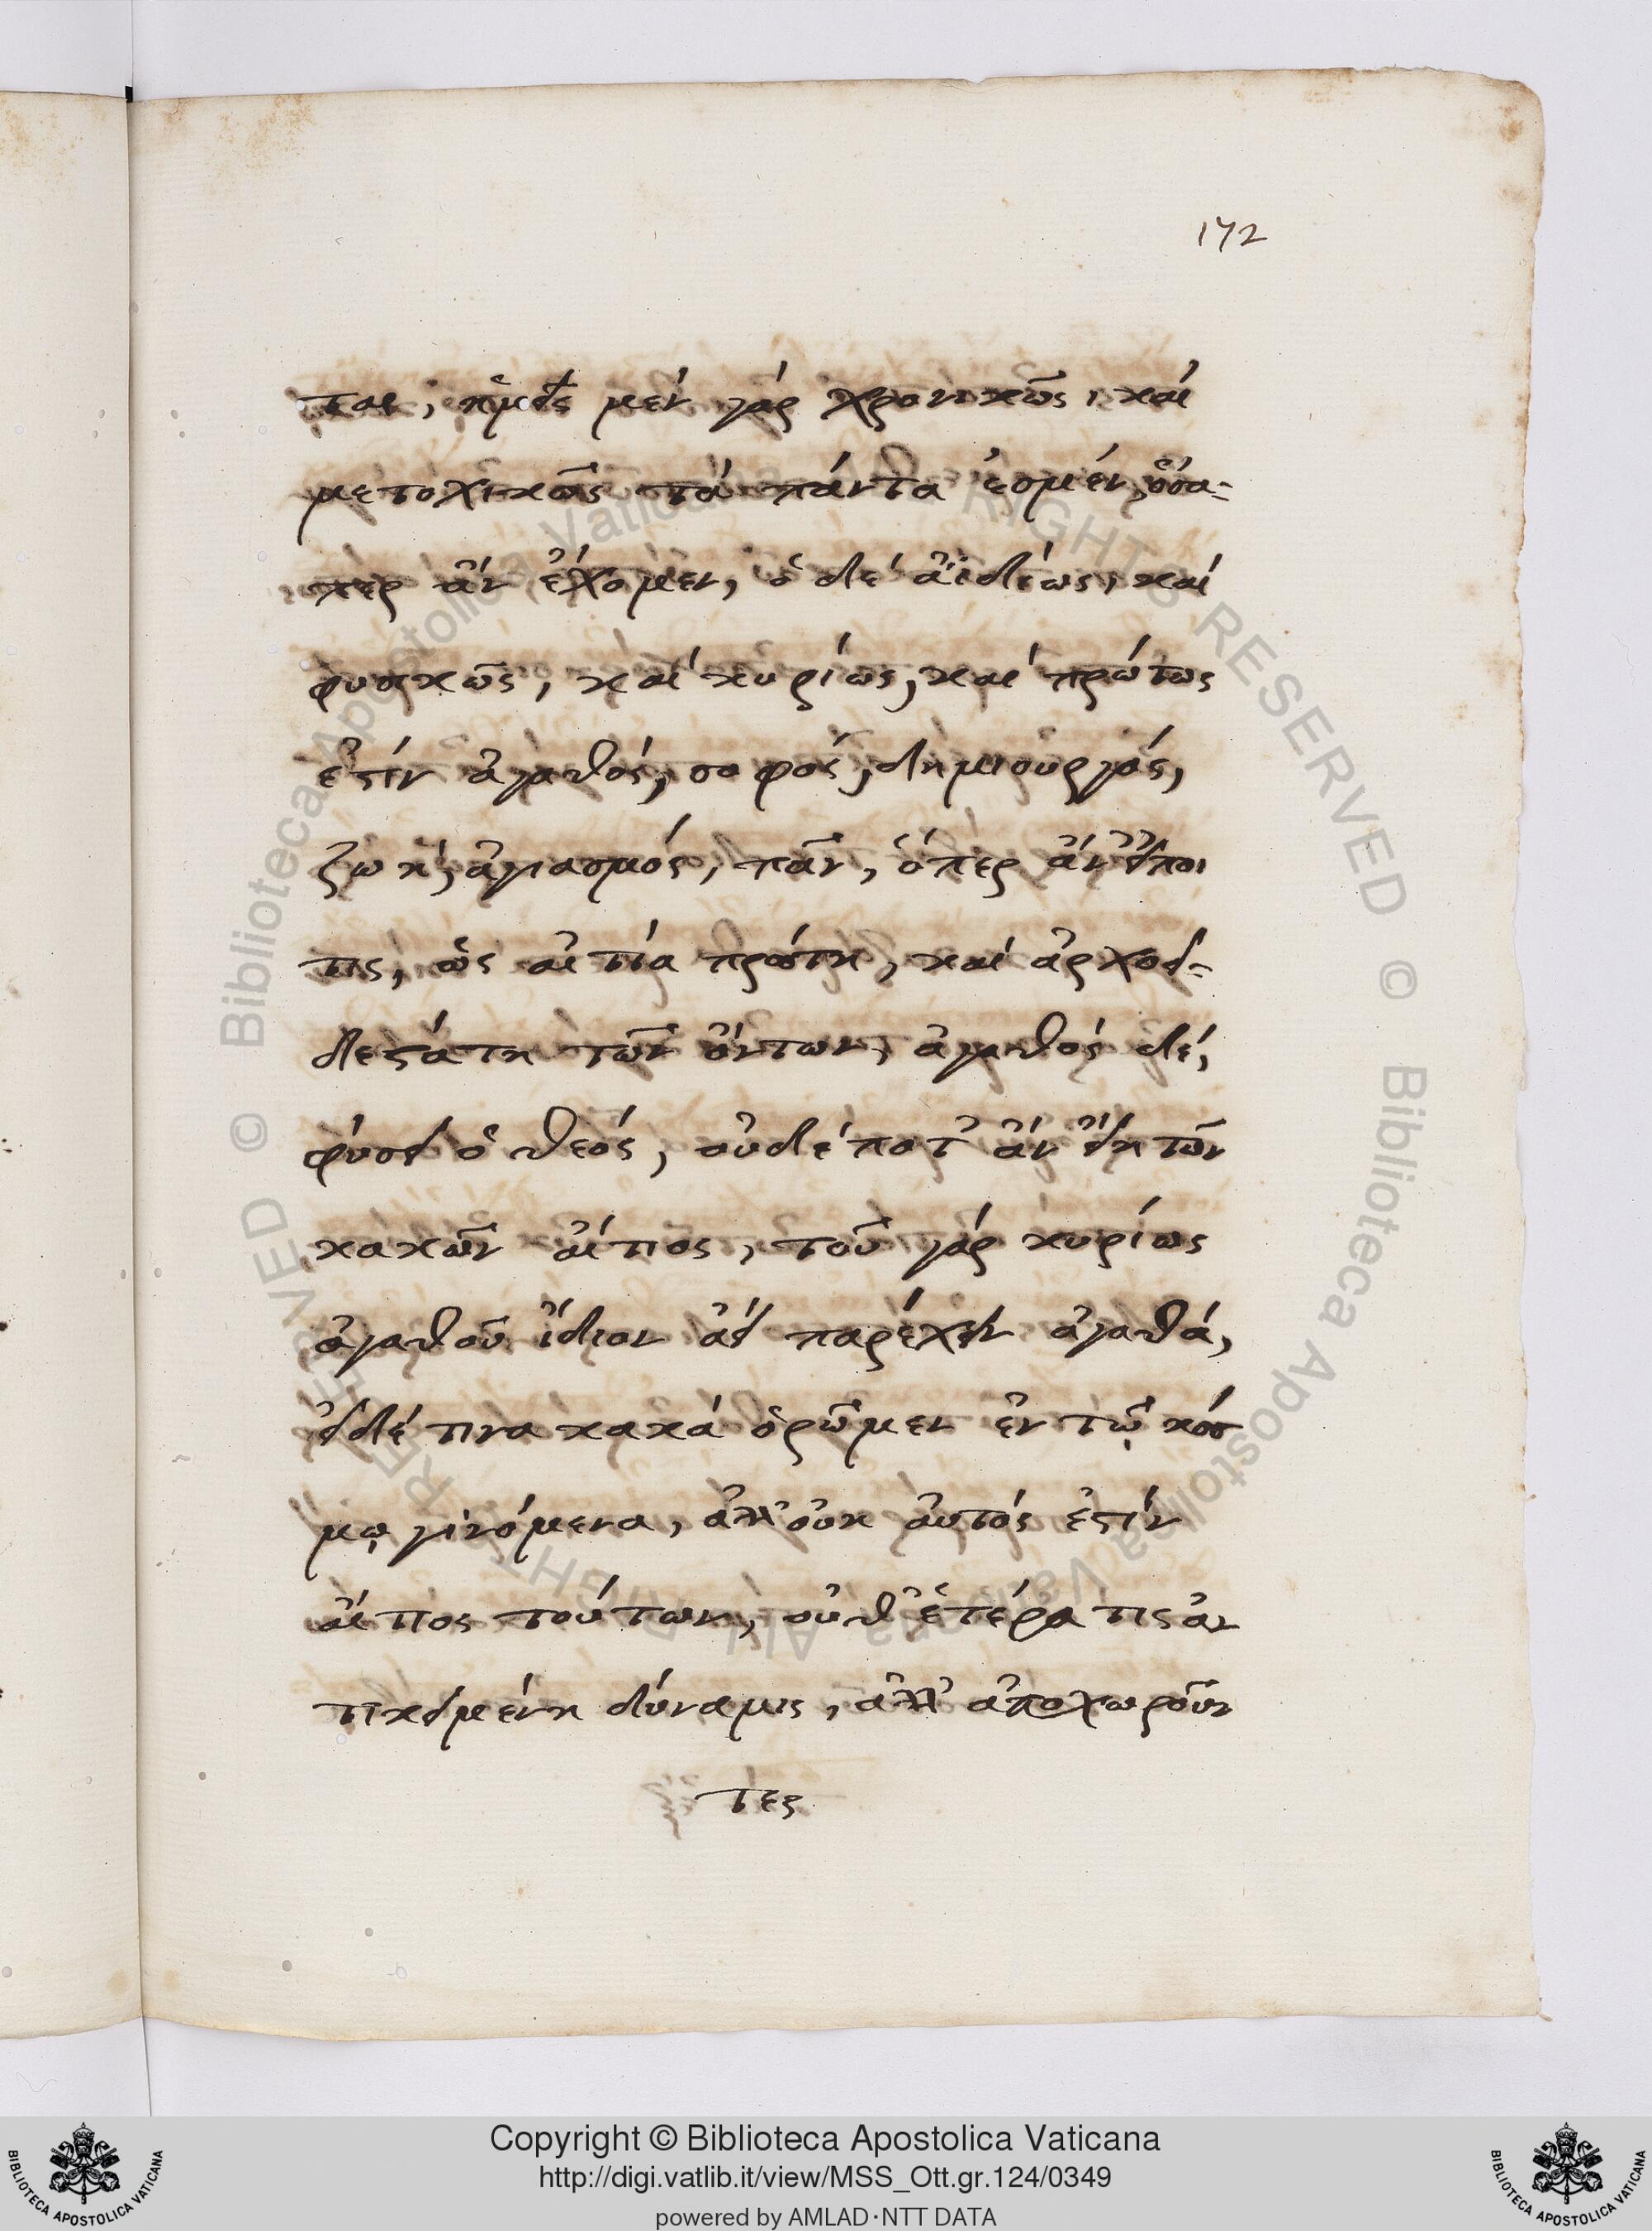 172
ται, ἡμεῖς μὲν γὰρ χρονικῶς, καὶ
μετοχικῶς τὰ πάντα ἐσμέν, ὅσα-
περ ἂν ἔχομεν, ὁ δὲ ἀϊδίως, καὶ
φυσικῶς, καὶ κυρίως, καὶ πρώτως
ἐστὶν ἀγαθός, σοφός, δημιουργός,
ζωή, ἁγιασμός, πᾶν, ὅπερ ἂν εἴποι
τις, ὡς αἰτία πρώτη, καὶ ἀρχοει-
δεστάτη τῶν ὄντων, ἀγαθὸς δέ,
φύσει ὁ θεός, οὐδέ ποτ' ἂν εἴη τῶν
κακῶν αἴτιος, τοῦ γὰρ κυρίως
ἀγαθοῦ ἴδιον ἀεὶ παρέχειν ἀγαθά,
εἰ δέ τινα κακὰ ὁρῶμεν ἐν τῷ κόσ
μῳ γινόμενα, ἀλλ' οὐκ αὐτός ἐστὶν
αἴτιος τούτων, οὐθ' ἑτέρα τις ἀν
τικειμένη δύναμις, ἀλλ' ἀποχωροῦν
τες
Copyright © Biblioteca Apostolica Vaticana
http://digi.vatlib.it/view/MSS_Ott.gr.124/0349
powered by AMLAD·NTT DATA
BIBLIOTECA APOSTOLICA VATICANA
BIBLIOTECA APOSTOLICA VATICANA